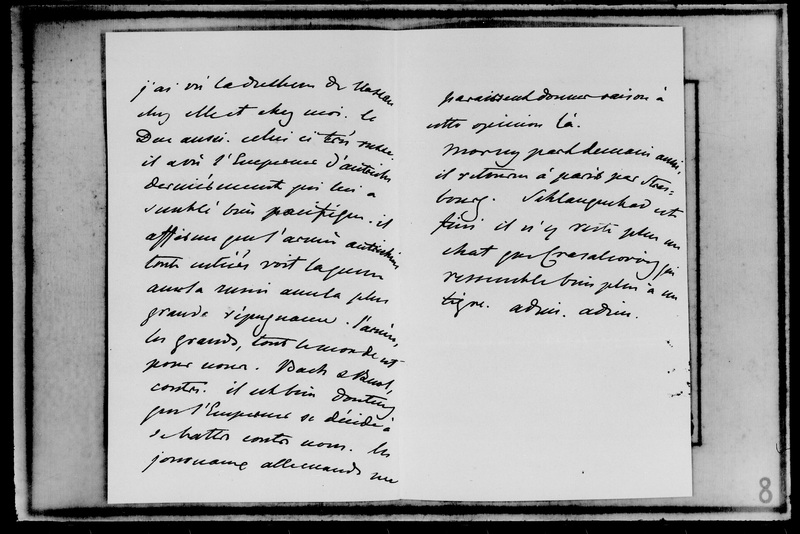 j'ai vu la duchesse de Nassau
chez elle et chez moi. le
Duc aussi. celui ci très russe.
il a vu l'Empereur d'autriche
dernièrement qui lui a
semblé bien pacifique. il
affirme que l'armée autrichienne
toute entière voit la guerre
avec la russie avec la plus
grande répugnance. l'armée,
les grands, tout le monde est
pour nous. Bach & Buol,
contre. il est bien douteux
que l'Empereur se décide à
se battre contre nous. les
journaux allemands me
paraissent donner raison à
cette opinion là.
Morny part demain aussi,
il retourne à paris par Stras-
bourg. Schlangenbad est
fini il n'y reste plus un
chat que qui
ressemble bien plus à un
tigre. adieu. adieu.
8